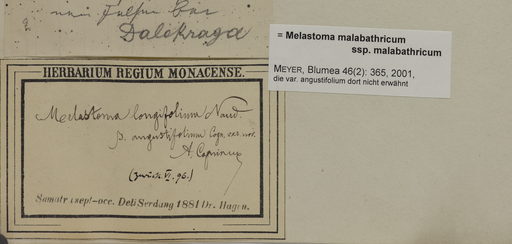 Dalekraga
HERBARIUM REGIUM MONACENSE.
Melastoma longifolium Naud.
β. angustifolium Cogn. var. nov.
A. Cogniaux
Sumatra sept-occ. Deli Serdang 1881 Dr. Hagen.
= Melastoma malabathricum
ssp. malabathricum
MEYER, Blumea 46(2): 365, 2001,
die var. angustifolium dort nicht erwähnt